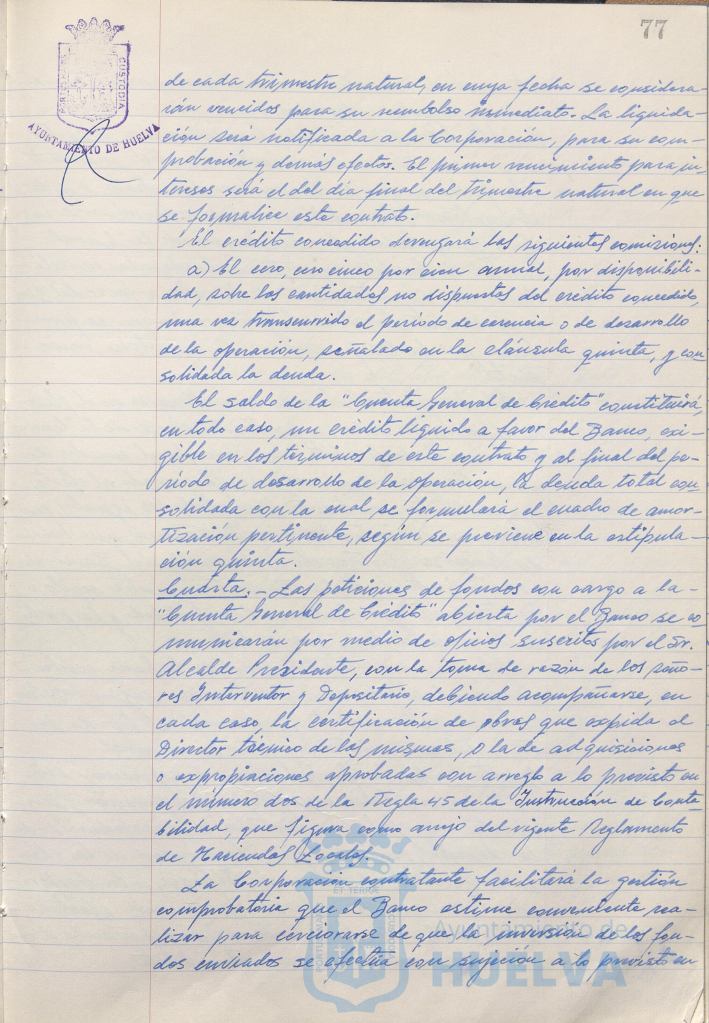 77
PORTUS MARIS ET TERRAE CUSTODIA
AYUNTAMIENTO DE HUELVA
de cada trimestre natural, en cuya fecha se considera-
rán vencidos para su reembolso inmediato. La liquida-
ción será notificada a la Corporación, para su com-
probación y demás efectos. El primer vencimiento para in-
tereses será el del día final del trimestre natural en que
se formalice este contrato.
El crédito concedido devengará las siguientes comisiones:
a) El cero, cero cinco por cien anual, por disponibili-
dad, sobre las cantidades no dispuestas del crédito concedido,
una vez transcurrido el período de carencia o de desarrollo
de la operación, señalado en la cláusula quinta, y con-
solidada la deuda.
El saldo de la "Cuenta General de Crédito" constituirá,
en todo caso, un crédito líquido a favor del Banco, exi-
gible en los términos de este contrato y al final del pe-
ríodo de desarrollo de la operación, la deuda total con-
solidada con la cual se formulará el cuadro de amor-
tización pertinente, según se previene en la estipula-
ción quinta.
Cuarta.- Las peticiones de fondos con cargo a la
"Cuenta General de Crédito" abierta por el Banco se co-
municarán por medio de oficios suscritos por el Sr.
Alcalde Presidente, con la toma de razón de los seño-
res Interventor y Depositario, debiendo acompañarse, en
cada caso, la certificación de obras que expida el
Director técnico de las mismas, o la de adquisiciones
o expropiaciones aprobadas con arreglo a lo previsto en
el número dos de la Regla 45 de la Instrucción de Conta-
bilidad, que figura como anejo del vigente Reglamento
de Haciendas Locales.
La Corporación contratante facilitará la gestión
comprobatoria que el Banco estime conveniente rea-
lizar para cerciorarse de que la inversión de los fon-
dos enviados se efectúa con sujeción a lo previsto en
Ayuntamiento de
HUELVA